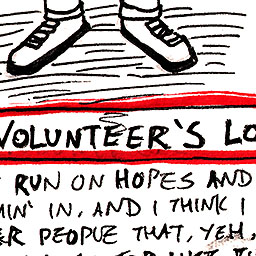 VOLUNTEER'S LO
RUN ON HOPES AND
MIN' IN, AND I THINK I
ER PEOPLE THAT, YEH,